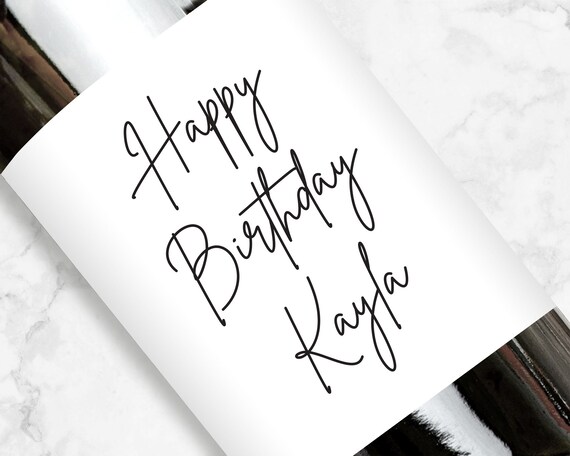 Happy
Birthday
Kayla